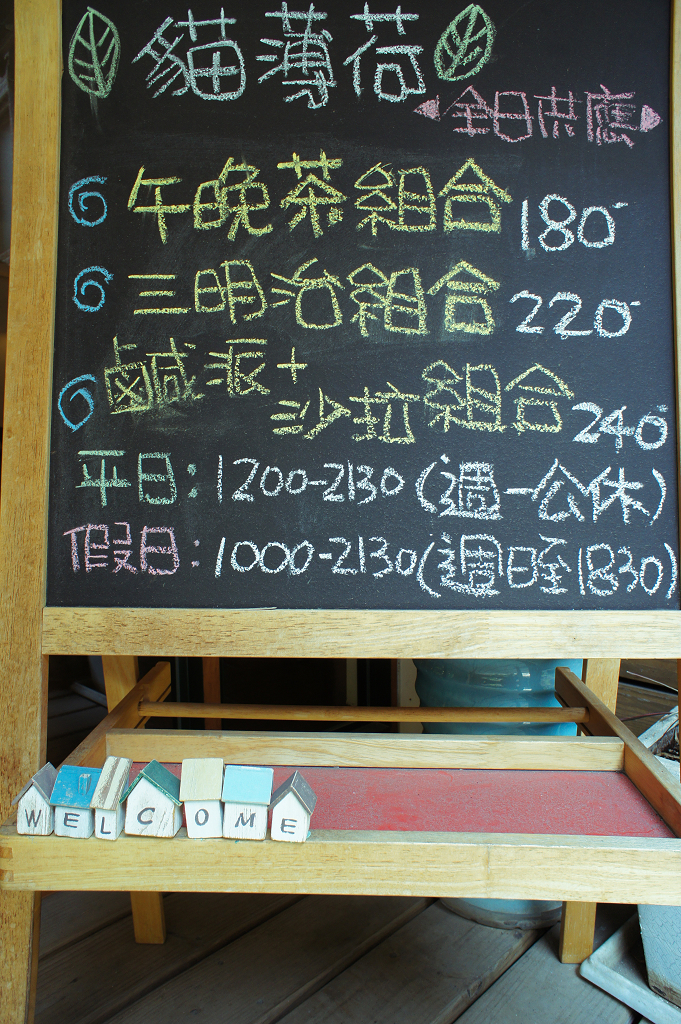 貓薄荷
全日供應
午晚茶組合 180
三明治組合 220
鹹派+
沙拉組合 240
平日:1200-2130(週一公休)
假日:1000-2130(週日至1830)
WELCOME